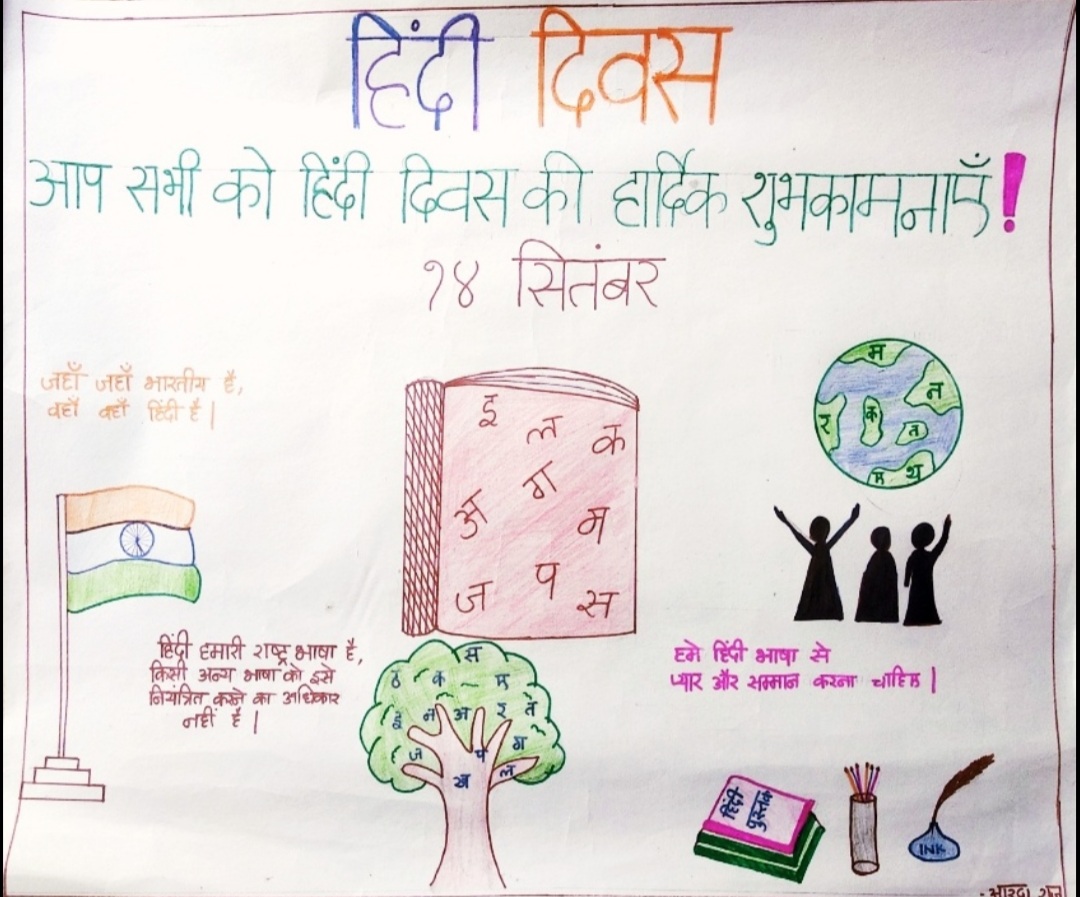 हिंदी दिवस
आप सभी को हिंदी दिवस की हार्दिक शुभकामनाएँ!
१४ सितंबर
जहाँ जहाँ भारतीय है,
वहाँ वहाँ हिंदी है|
इ
ल
क
ग
अ
म
प
ज
स
म
न
र
क
त
म
थ
हिंदी हमारी राष्ट्र भाषा है,
किसी अन्य भाषा को इसे
नियंत्रित करने का अधिकार
नहीं है|
हमे हिंदी भाषा से
प्यार और सम्मान करना चाहिए|
स
ठ
क
इ
न
अ
र
त
ज
प
ग
ख
ल
हिंदी
पुस्तक
INK